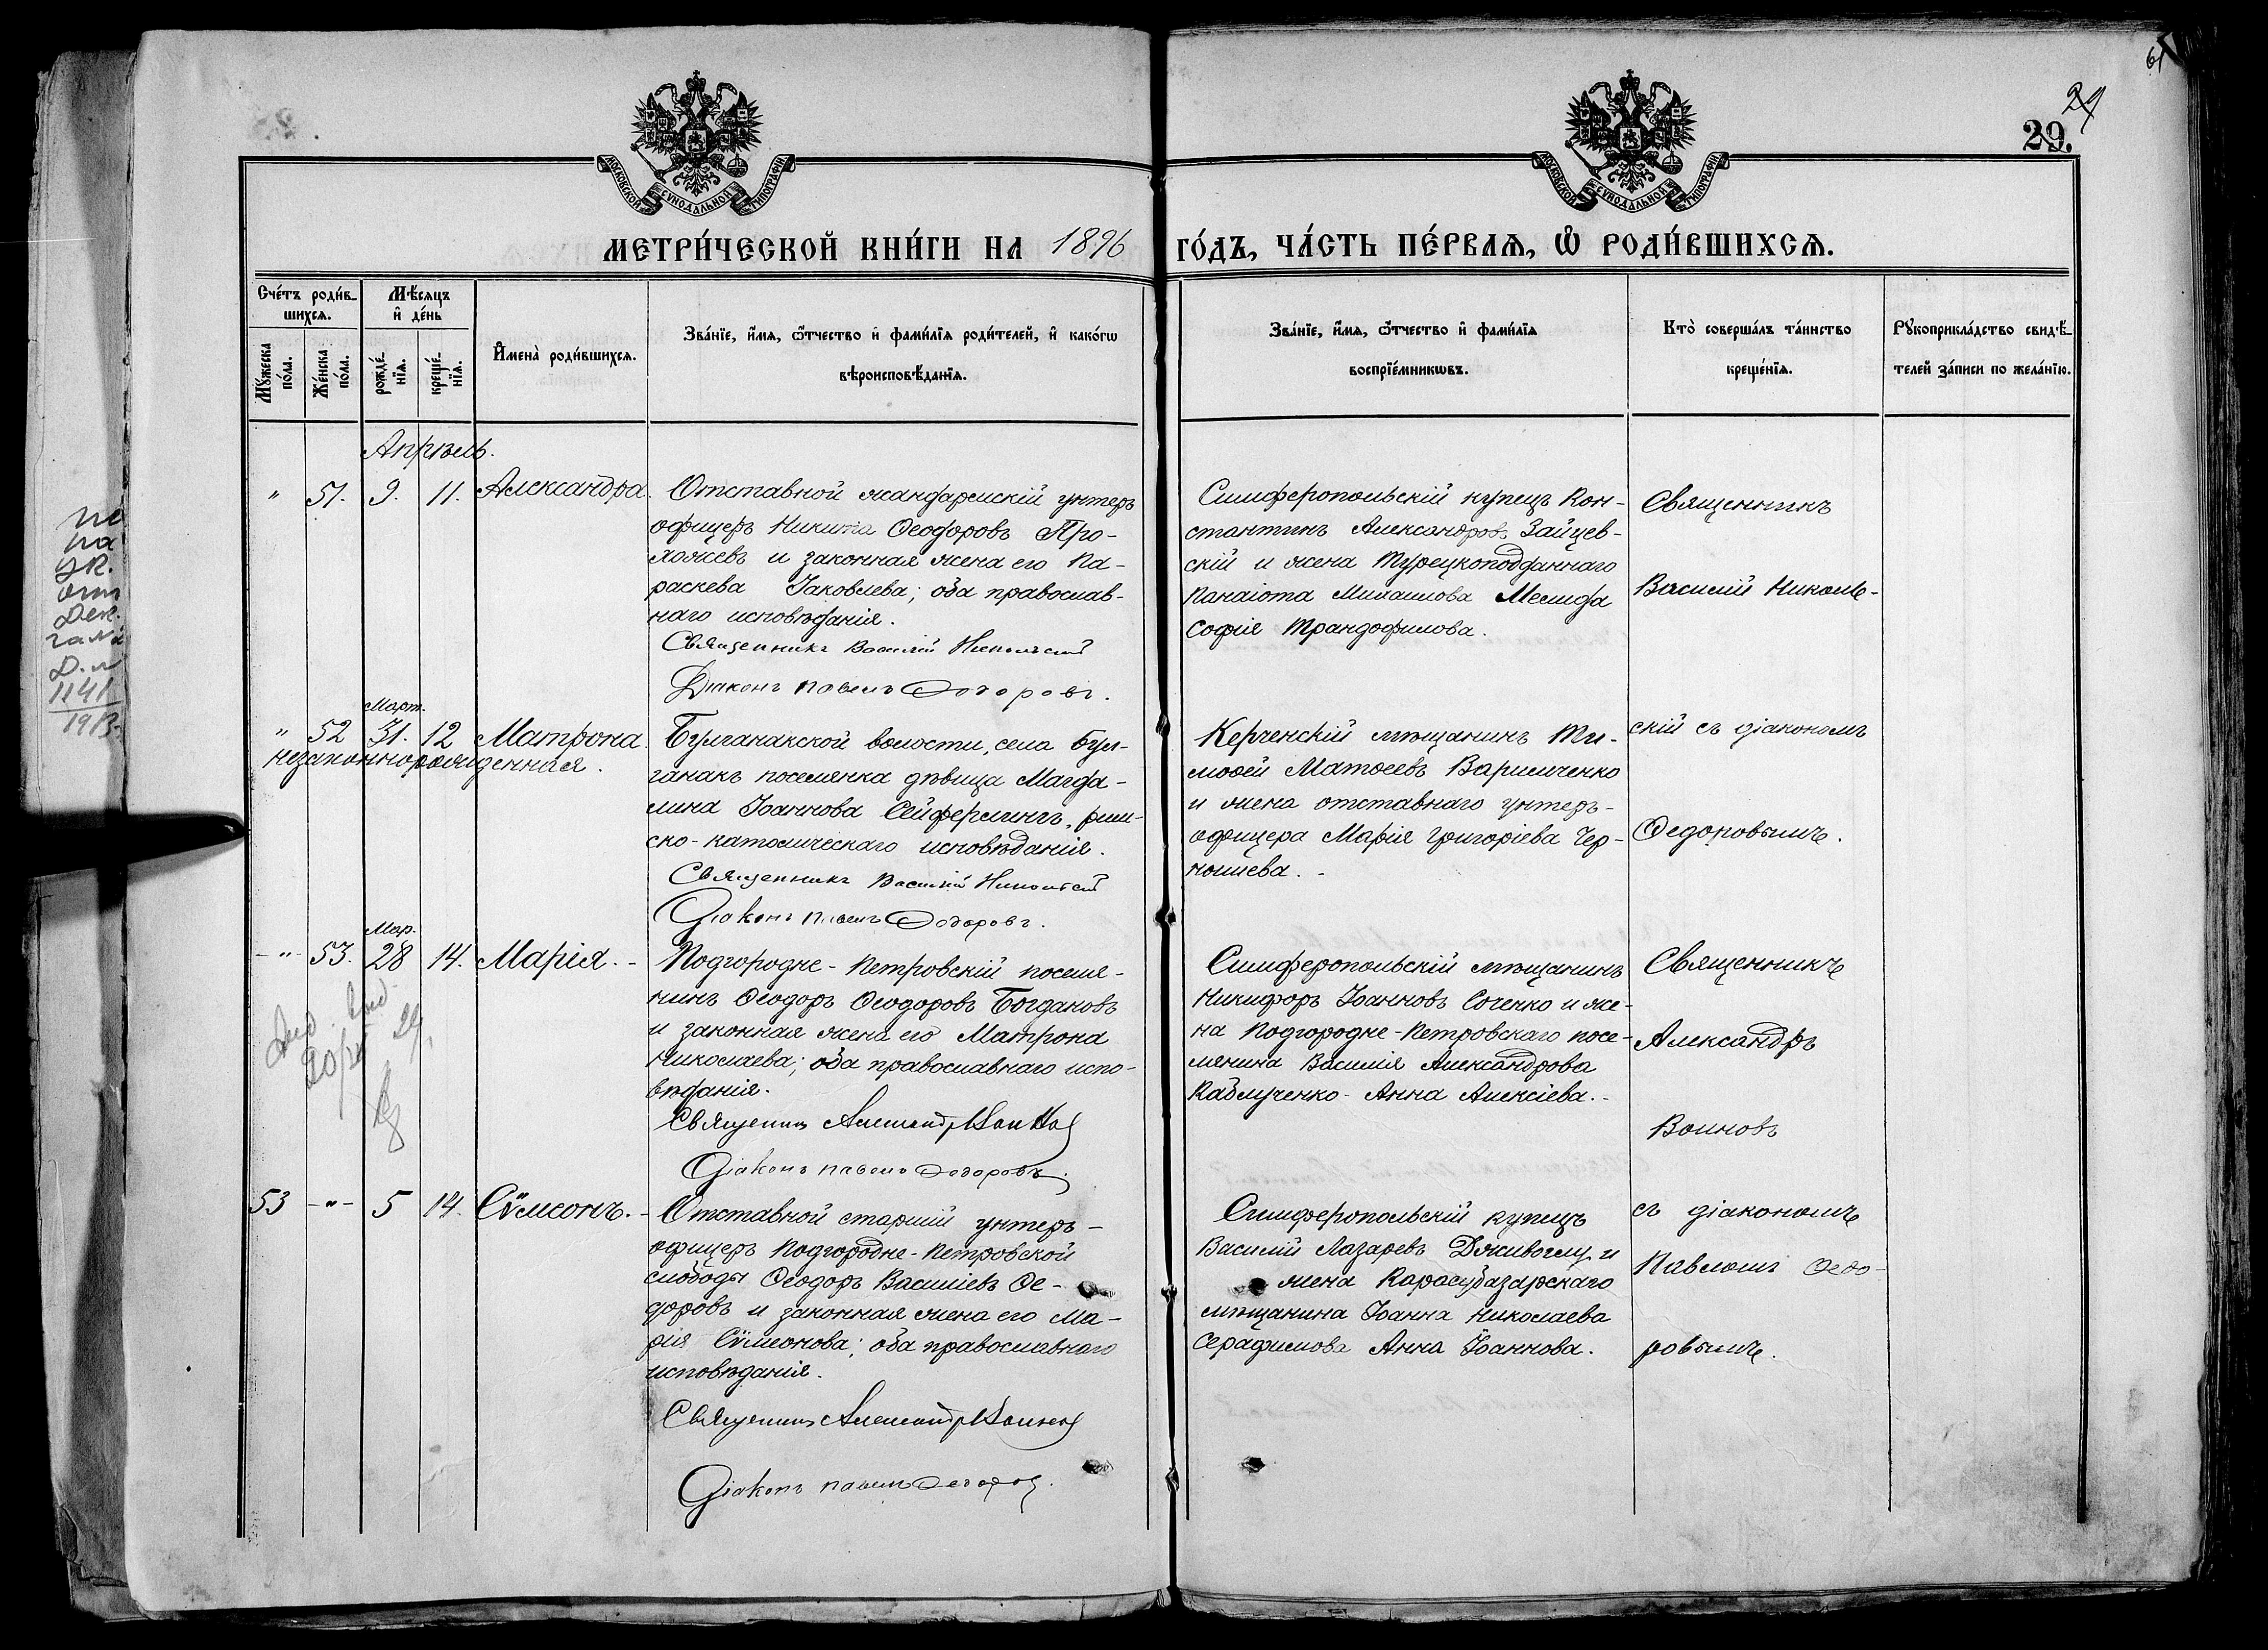 61
29
29.
МОСКОВСКОЙ СУНОДАЛЬНОЙ ТИПОГРАФІИ
МОСКОВСКОЙ СУНОДАЛЬНОЙ ТИПОГРАФІИ
МЕТРИ́ЧЕСКОЙ КНИ́ГИ НА 1896 ГО́ДЪ, ЧА́СТЬ ПЕ́РВАѦ, Ѡ҆ РОДИ́ВШИХСѦ.
Сче́тъ роди́в-
шихсѧ.
Мѣ́сѧцъ
и҆ де́нь
Мꙋ́жеска по́ла.
Же́нска по́ла.
рожде́-нїѧ.
креще́-нїѧ.
И҆мена̀ роди́вшихсѧ.
Зва́нїе, и҆́мѧ, ѻ҆́тчество и҆ фами́лїѧ роди́телей, и҆ како́гѡ
вѣроисповѣ́данїѧ.
Зва́нїе, и҆́мѧ, ѻ҆́тчество и҆ фами́лїѧ
воспрїе́мникѡвъ.
Кто̀ соверша́лъ та́инство
креще́нїѧ.
Рꙋкоприкла́дство свидѣ́-
телей за́писи по жела́нїю.
Апрѣль.
" 51. 9. 11. Александра.
Отставной жандармскій унтеръ
офицеръ Никита Ѳеодоровъ Про-
хожевъ и законная жена его Па-
раскева Іаковлева; оба православ-
наго исповѣданія.
Священникъ Василій Никольскій
Діаконъ Павелъ Ѳедоровъ.
Симферопольскій купецъ Кон-
стантинъ Александровъ Зайцев-
скій и жена Турецкоподданнаго
Панаіота Михаилова Мелифа
Софія Трандофилова.
Священникъ
Василій Николь-
Март.
" 52 31. 12 Матрона.
незаконнорожденная.
Булганакской волости, села Бул-
ганакъ поселянка дѣвица Магда-
лина Іоаннова Сейферлингъ, рим-
ско-католическаго исповѣданія.
Священникъ Василій Никольскій
Діаконъ Павелъ Ѳедоровъ.
Керченскій мѣщанинъ Ти-
моѳей Матѳеевъ Вариличенко
и жена отставнаго унтеръ-
офицера Марія Григоріева Чер-
нышева. -
скій съ діакономъ
Ѳедоровымъ.
Мар.
- " - 53. 28 14. Марія. -
Подгородне-Петровскій поселя-
нинъ Ѳеодоръ Ѳеодоровъ Богдановъ
и законная жена его Матрона
Николаева; оба православнаго испо-
вѣданія.
Священникъ Александръ Воиновъ
Діаконъ Павелъ Ѳедоровъ.
Симферопольскій мѣщанинъ
Никифоръ Іоанновъ Соченко и же-
на Подгородне-Петровскаго посе-
лянина Василія Александрова
Каблученко - Анна Алексіева. -
Священникъ
Александръ
Воиновъ
53 - " - 5 14. Сѵмеонъ. -
Отставной старшій унтеръ-
офицеръ Подгородне-Петровской
слободы Ѳеодоръ Василіевъ Ѳе-
доровъ и законная жена его Ма-
рія Сѵмеонова; оба православнаго
исповѣданія.
Священникъ Александръ Воиновъ
Діаконъ Павелъ Ѳедоровъ.
Симферопольскій купецъ
Василій Лазаревъ Дживоглу и
жена Карасубазарскаго
мѣщанина Іоанна Николаева
Серафимова Анна Іоаннова.
съ діакономъ
Павломъ Ѳедо-
ровымъ.
1141
1913